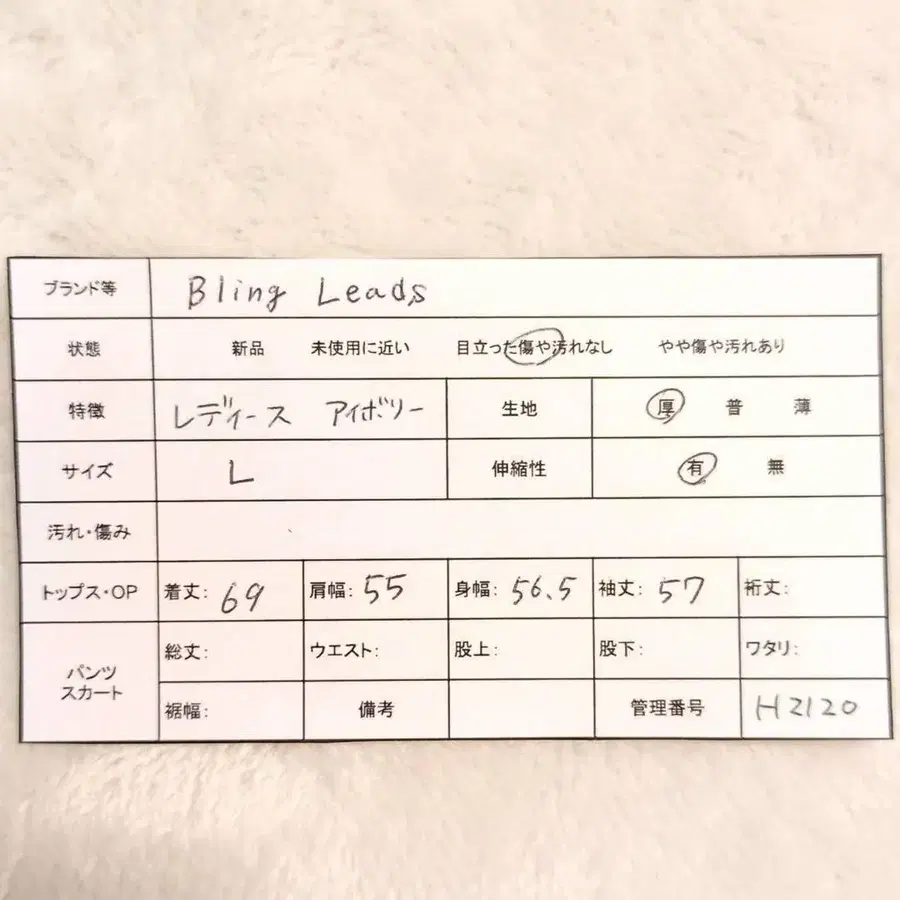 ブランド等 Bling Leads
状態 新品 未使用に近い 目立った傷や汚れなし やや傷や汚れあり
特徴 レディース アイボリー 生地 厚 普 薄
サイズ L 伸縮性 有 無
汚れ・傷み
トップス・OP 着丈: 69 肩幅: 55 身幅: 56.5 袖丈: 57 裄丈:
パンツ
スカート
総丈: ウエスト: 股上: 股下: ワタリ:
裾幅: 備考 管理番号 H2120